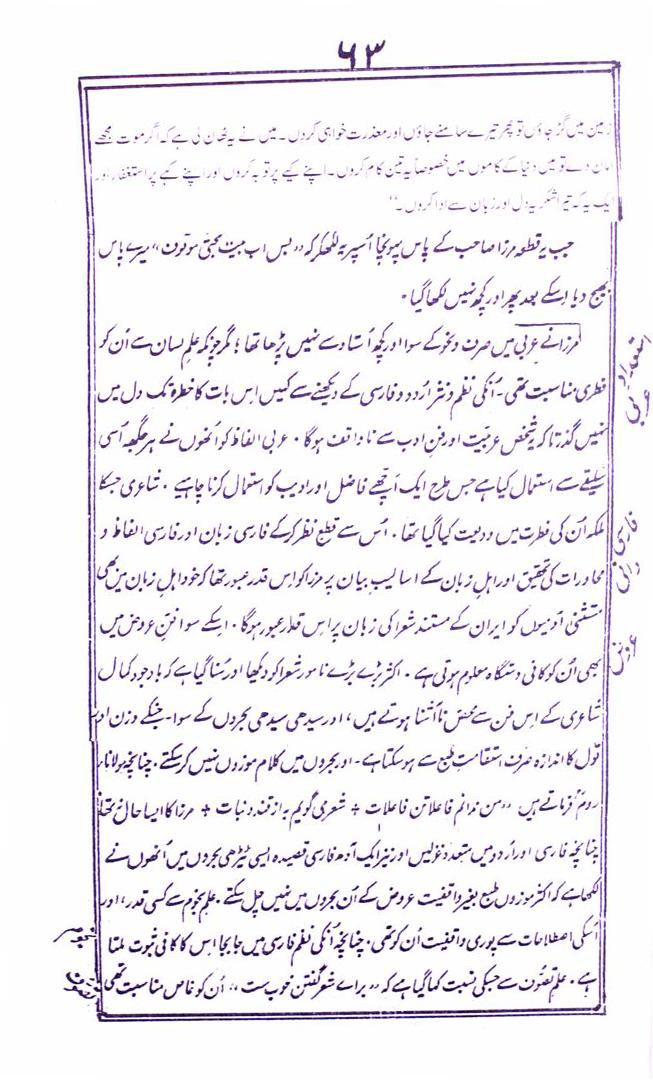 ۶۳
زمین میں گڑ جاؤں تو پھر تیرے سامنے جاؤں اور معذرت خواہی کروں۔ میں نے یہ ٹھان لی ہے کہ اگر موت مجھے
امان دے تو میں دنیا کے کاموں میں خصوصاً یہ تین کام کروں۔ اپنے کیے پر توبہ کروں اور اپنے کہے پر استغفار اور
ایک یہ کہ تیرا شکریہ دل اور زبان سے ادا کروں۔"
جب یہ قطعہ مرزا صاحب کے پاس پہونچا اُسپر یہ لکھکر کہ "بس اب بیت بحثی موقوف" میرے پاس
بھیج دیا اسکے بعد پھر اور کچھ نہیں لکھا گیا ۰
مرزا نے عربی میں صرف و نحو کے سوا اور کچھ اُستاد سے نہیں پڑھا تھا؛ مگر چونکہ علم لسان سے اُن کو
فطری مناسبت تھی۔ اُنکی نظم و نثر اُردو و فارسی کے دیکھنے سے کہیں اس بات کا خطرہ تک دل میں
نہیں گذرتا کہ یہ شخص عربیت اور فن ادب سے ناواقف ہوگا ۰ عربی الفاظ کو اُنھوں نے ہر جگہہ اُسی
سلیقے سے استعمال کیا ہے جس طرح ایک اچھے فاضل اور ادیب کو استعمال کرنا چاہیے ۰ شاعری جسکا
ملکہ اُن کی فطرت میں ودیعت کیا گیا تھا ۰ اُس سے قطع نظر کر کے فارسی زبان اور فارسی الفاظ و
محاورات کی تحقیق اور اہل زبان کے اسالیب بیان پر مرزا کو اس قدر عبور تھا کہ خود اہل زبان میں بھی
مستثنیٰ آدمیوں کو ایران کے مستند شعرا کی زبان پر اس قدر عبور ہوگا ۰ اسکے سوا فن عروض میں
بھی اُن کو کافی دستگاہ معلوم ہوتی ہے ۰ اکثر بڑے بڑے نامور شعرا کو دیکھا اور سُنا گیا ہے کہ باوجود کمال
شاعری کے اس فن سے محض ناآشنا ہوتے ہیں، اور سیدھی سیدھی بحروں کے سوا۔ جنکے وزن اور
تول کا اندازہ صرف استقامت طبع سے ہوسکتا ہے۔ اور بحروں میں کلام موزوں نہیں کر سکتے ۰ چنانچہ مولانا
روم فرماتے ہیں "من ندانم فاعلاتن فاعلات + شعری گویم بہ از قند و نبات + مرزا کا ایسا حال نتھا
چنانچہ فارسی اور اُردو میں متعدد غزلیں اور نیز ایک آدھ فارسی قصیدہ ایسی ٹیڑھی بحروں میں اُنھوں نے
لکھا ہے کہ اکثر موزوں طبع بغیر واقفیت عروض کے اُن بحروں میں نہیں چل سکتے ۰ علم نجوم سے کسی قدر، اور
اُسکی اصطلاحات سے پوری واقفیت اُن کو تھی ۰ چنانچہ اُنکی نظم فارسی میں جابجا اس کا کافی ثبوت ملتا
ہے ۰ علم تصوف سے جسکی نسبت کہا گیا ہے کہ "برائے شعر گفتن خوب ست" اُن کو خاص مناسبت تھی
استعداد عربی
فارسی دانی
عروض
نجوم
تصوف